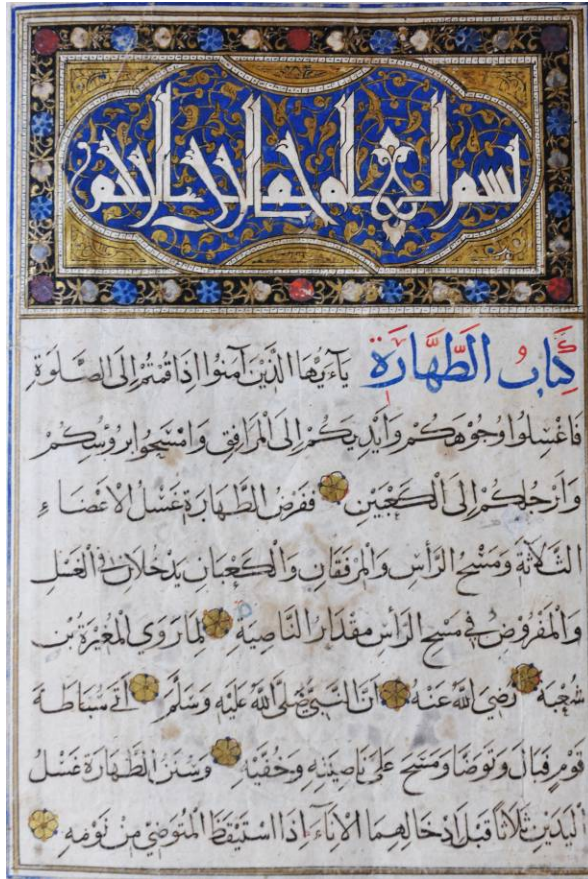 بسم الله الرحمن الرحيم
كتاب الطَّهَارَة يآءيُّهَا الَّذِينَ آمَنُوا اِذَا قُمْتُمْ اِلَى الصَّلوٰةِ
فَاغْسِلُوا وُجُوهَكُمْ وَاَيْدِيَكُمْ اِلَى الْمَرَافِقِ وَامْسَحُوا بِرُؤُسِكُمْ
وَاَرْجُلَكُمْ اِلَى الْكَعْبَيْنِ فَفَرْضُ الطَّهَارَةِ غَسْلُ الْاَعْضَاءِ
الثَّلَاثَةِ وَمَسْحُ الرَّأْسِ وَالْمِرْفَقَانِ وَالْكَعْبَانِ يَدْخُلَانِ فِى الْغَسْلِ
وَالْمَفْرُوضُ فِى مَسْحِ الرَّأْسِ مِقْدَارُ النَّاصِيَةِ لِمَا رَوَى الْمُغِيْرَةُ بْن
شُعْبَةَ رَضِيَ اللّٰهُ عَنْهُ اَنَّ النَّبِيَّ صَلَّى اللّٰهُ عَلَيْهِ وَسَلَّمَ اَتَى سُبَاطَةَ
قَوْمٍ فَبَالَ وَتَوَضَّأَ وَمَسَحَ عَلَى نَاصِيَتِهِ وَخُفَّيْهِ وَسُنَنُ الطَّهَارَةِ غَسْلُ
الْيَدَيْنِ ثَلَاثًا قَبْلَ اِدْخَالِهِمَا الْاِنَآءَ اِذَا اسْتَيْقَظَ الْمُتَوَضِّئُ مِنْ نَوْمِهِ